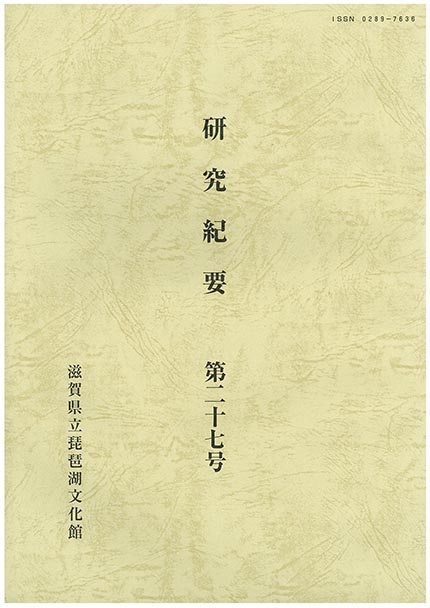 ISSN 0289-7636
研究紀要 第二十七号
滋賀県立琵琶湖文化館